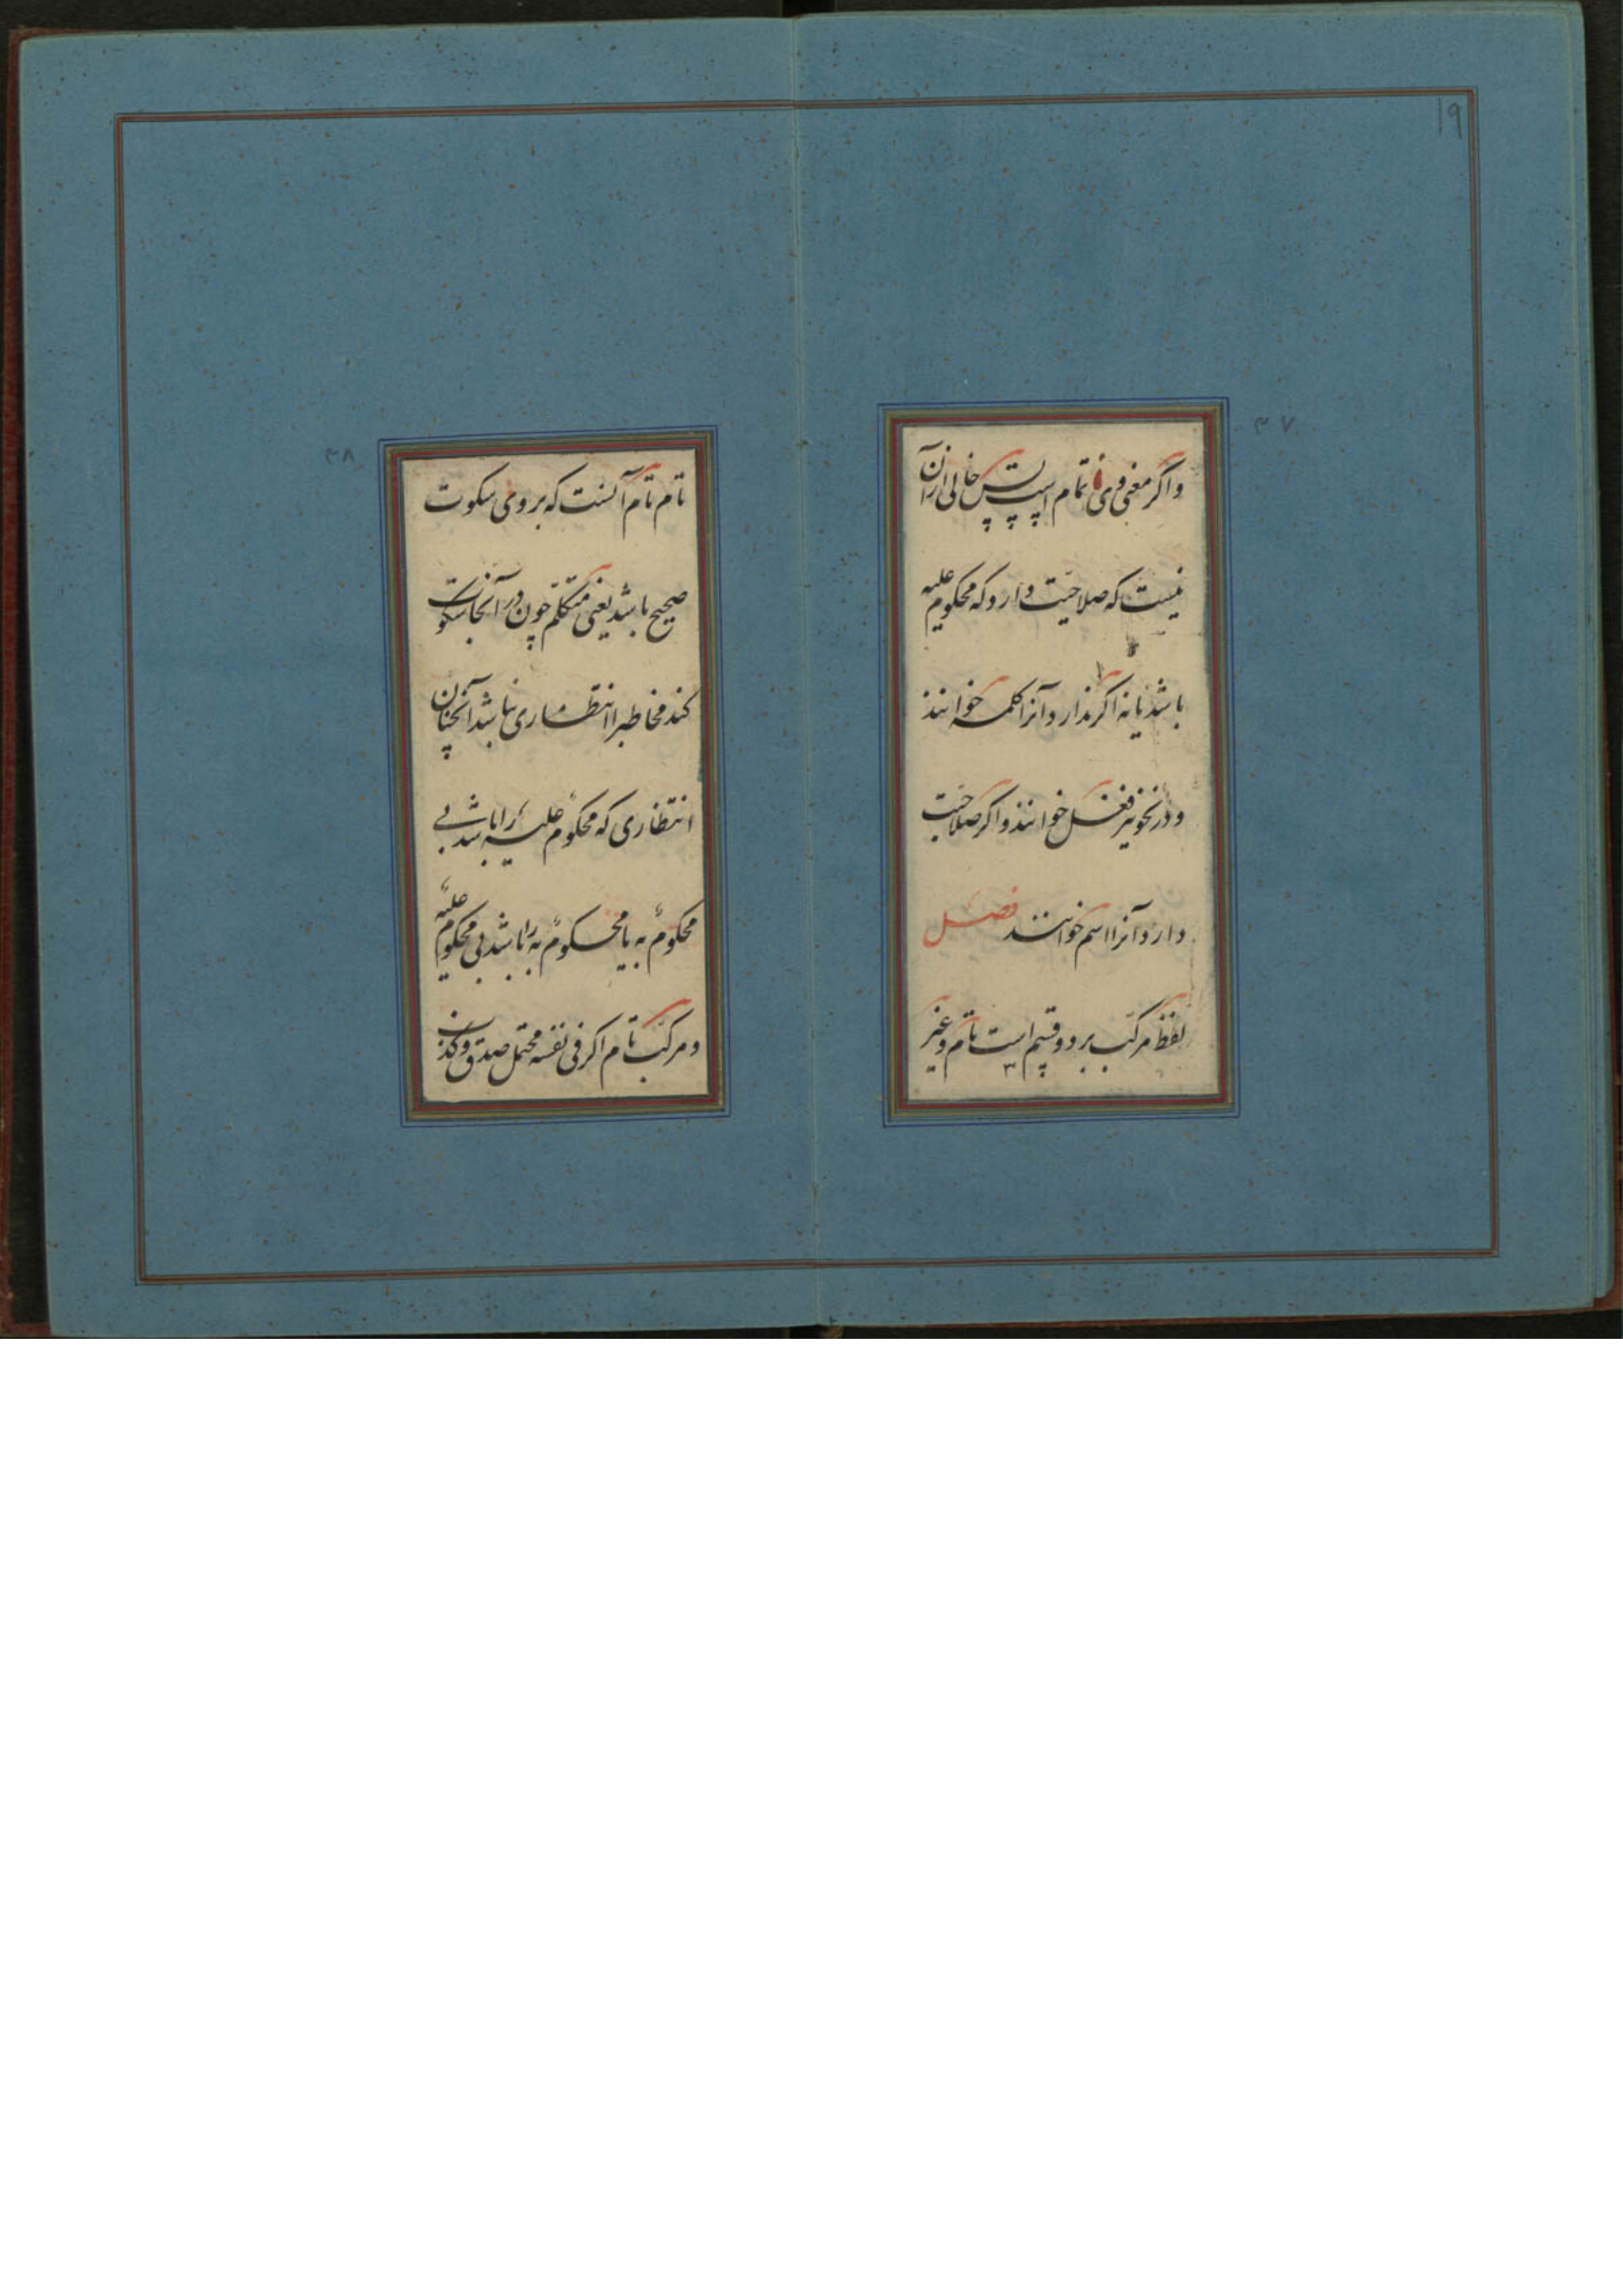 ١٩
٣٧
واگر معنی وی تمام است پس خالی ازان
نیست که صلاحیت دارد که محکوم علیه
باشد یا نه اگر ندارد آنرا کلمه خوانند
ودر نحو نیز فعل خوانند واگر صلاحیت
دارد آنرا اسم خوانند فصل
لفظ مرکب بر دو قسم است تام وغیر
٣٨
تام تام آنست که بروی سکوت
صحیح باشد یعنی متکلم چون در آنجا سکوت
کند مخاطب را انتظاری نباشد آنچنان
انتظاری که محکوم علیه را باشد بی
محکوم به یا محکوم به را باشد بی محکوم علیه
ومرکب تام اکر فی نفسه محتمل صدق وکذب